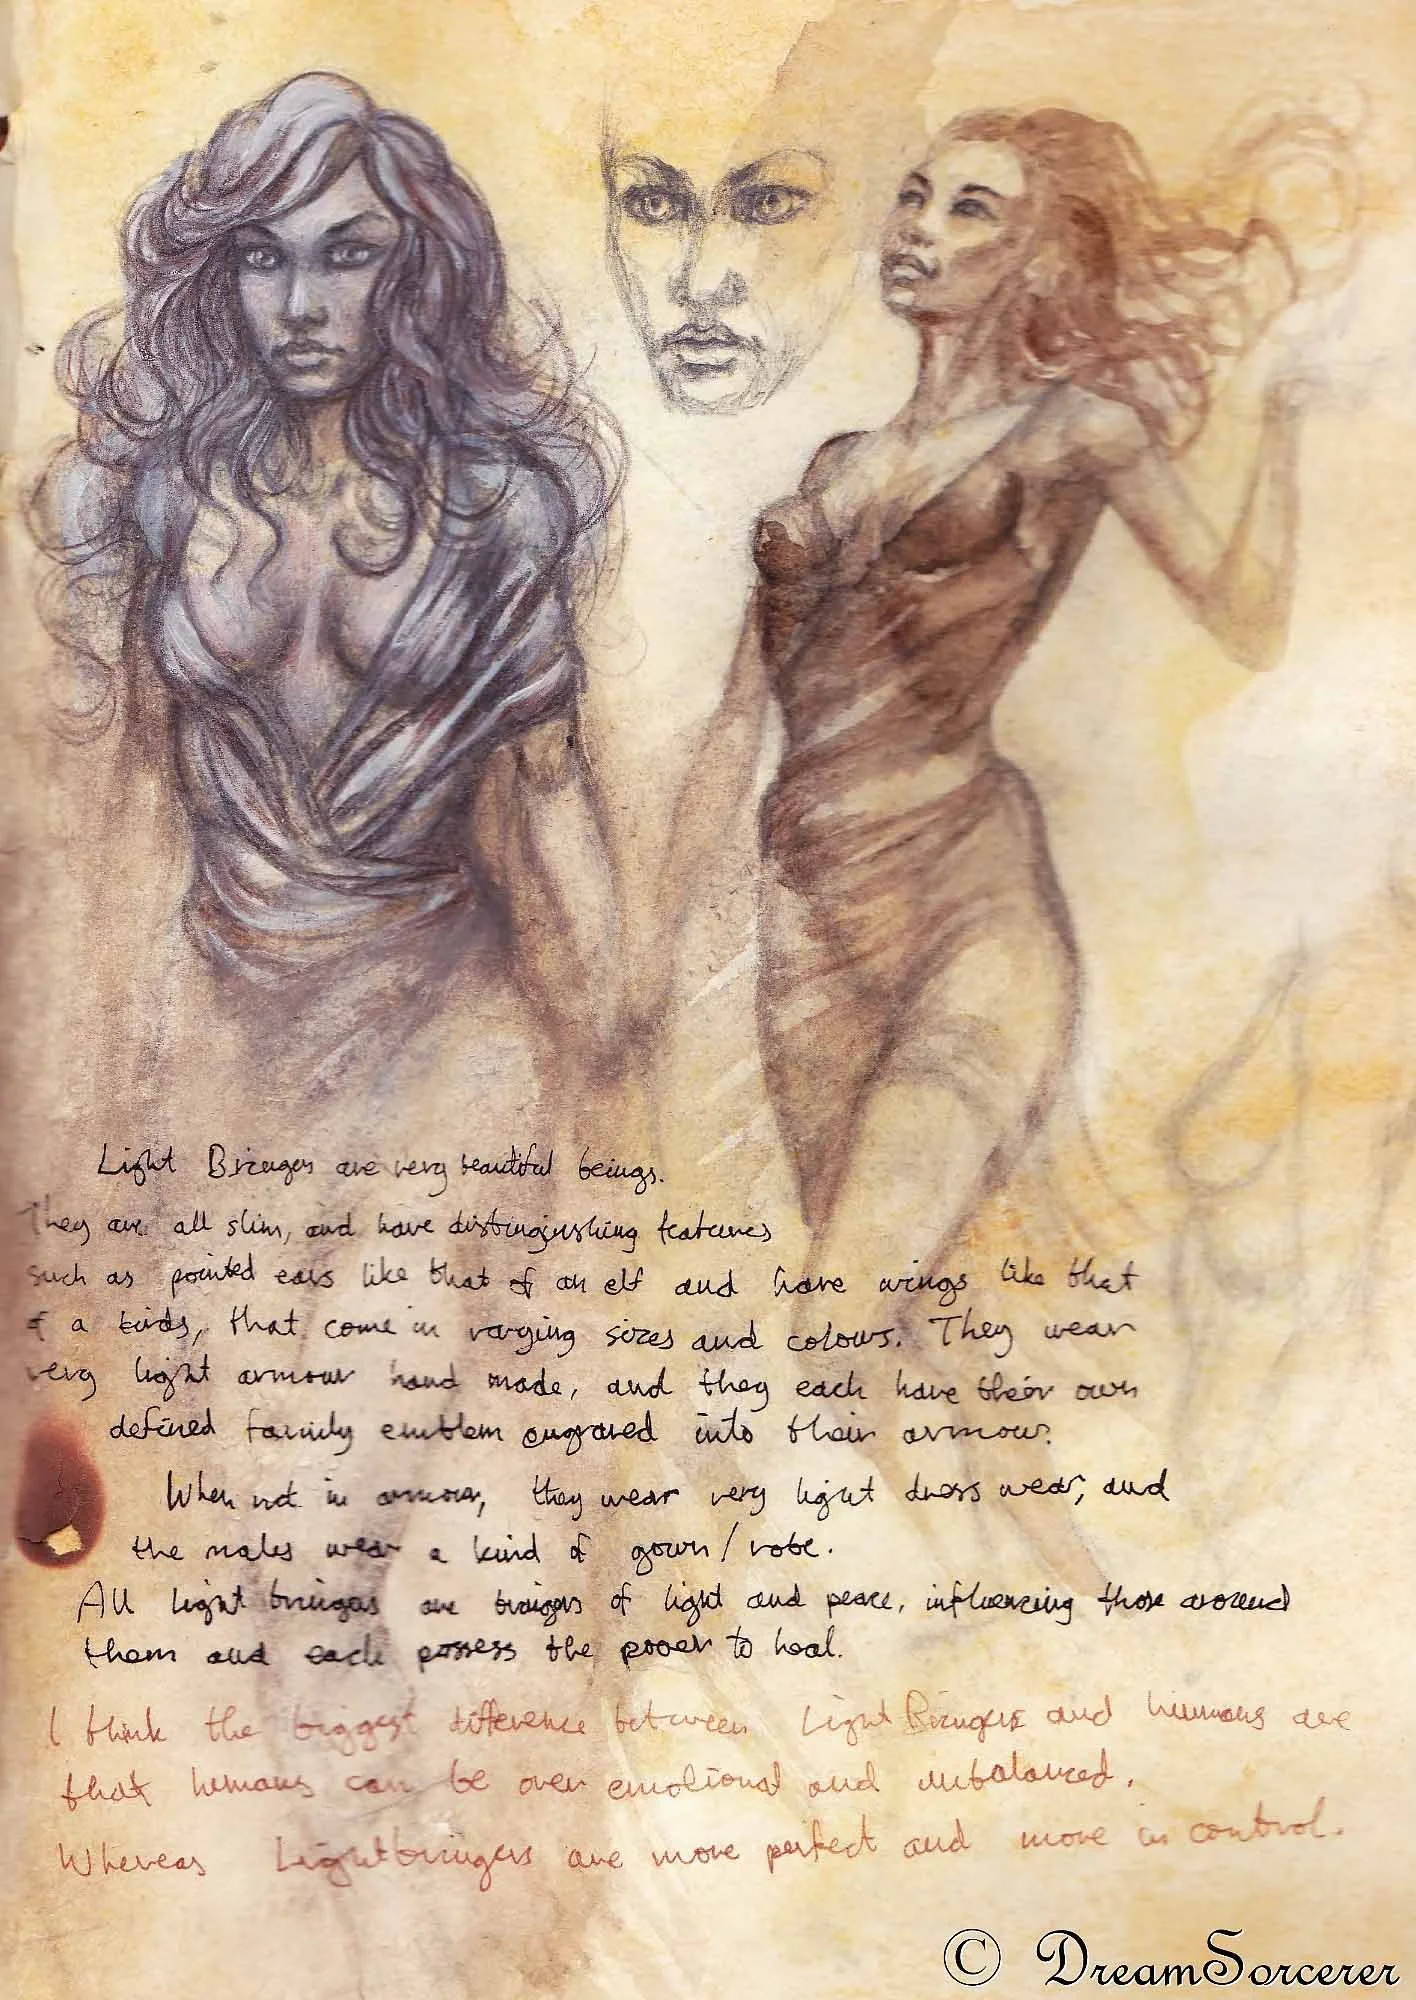 Light Bringers are very beautiful beings.
They are all slim, and have distinguishing features
such as pointed ears like that of an elf and have wings like that
of a birds, that come in varying sizes and colours. They wear
very light armour hand made, and they each have their own
defined family emblem engraved into their armour.
When not in armour, they wear very light dress wear, and
the males wear a kind of gown/robe.
All light bringers are bringers of light and peace, influencing those around
them and each possess the power to heal.
I think the biggest difference between Light Bringers and humans are
that humans can be over emotional and unbalanced.
Whereas Lightbringers are more perfect and more in control.
© DreamSorcerer